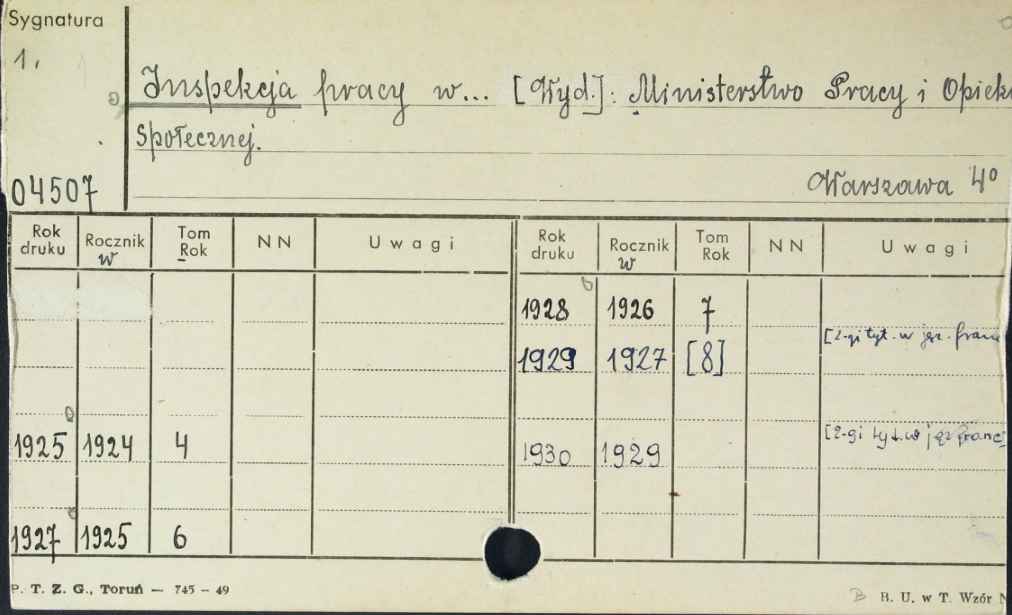 Sygnatura
1.
Inspekcja pracy w... [Wyd.]: Ministerstwo Pracy i Opiek
Społecznej.
04507
Warszawa 4°
Rok druku Rocznik w Tom Rok NN Uwagi Rok druku Rocznik w Tom Rok NN Uwagi
1928 1926 7
[2-gi tyt. w jęz. franc
1929 1927 [8]
[2-gi tyt. w jęz franc]
1925 1924 4 1930 1929
1927 1925 6
P. T. Z. G., Toruń — 745 – 49
B. U. w T. Wzór N